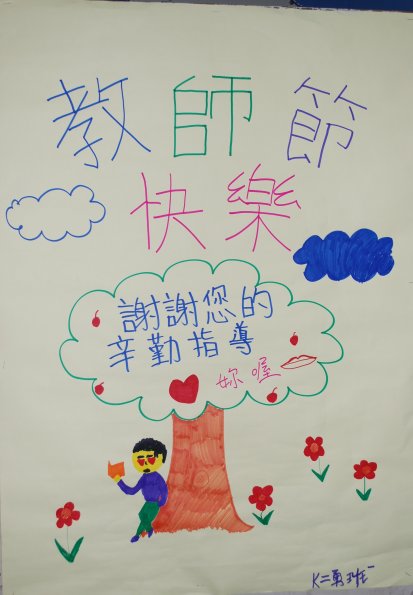 教師節
快樂
謝謝您的
辛勤指導
妳喔
K二勇班